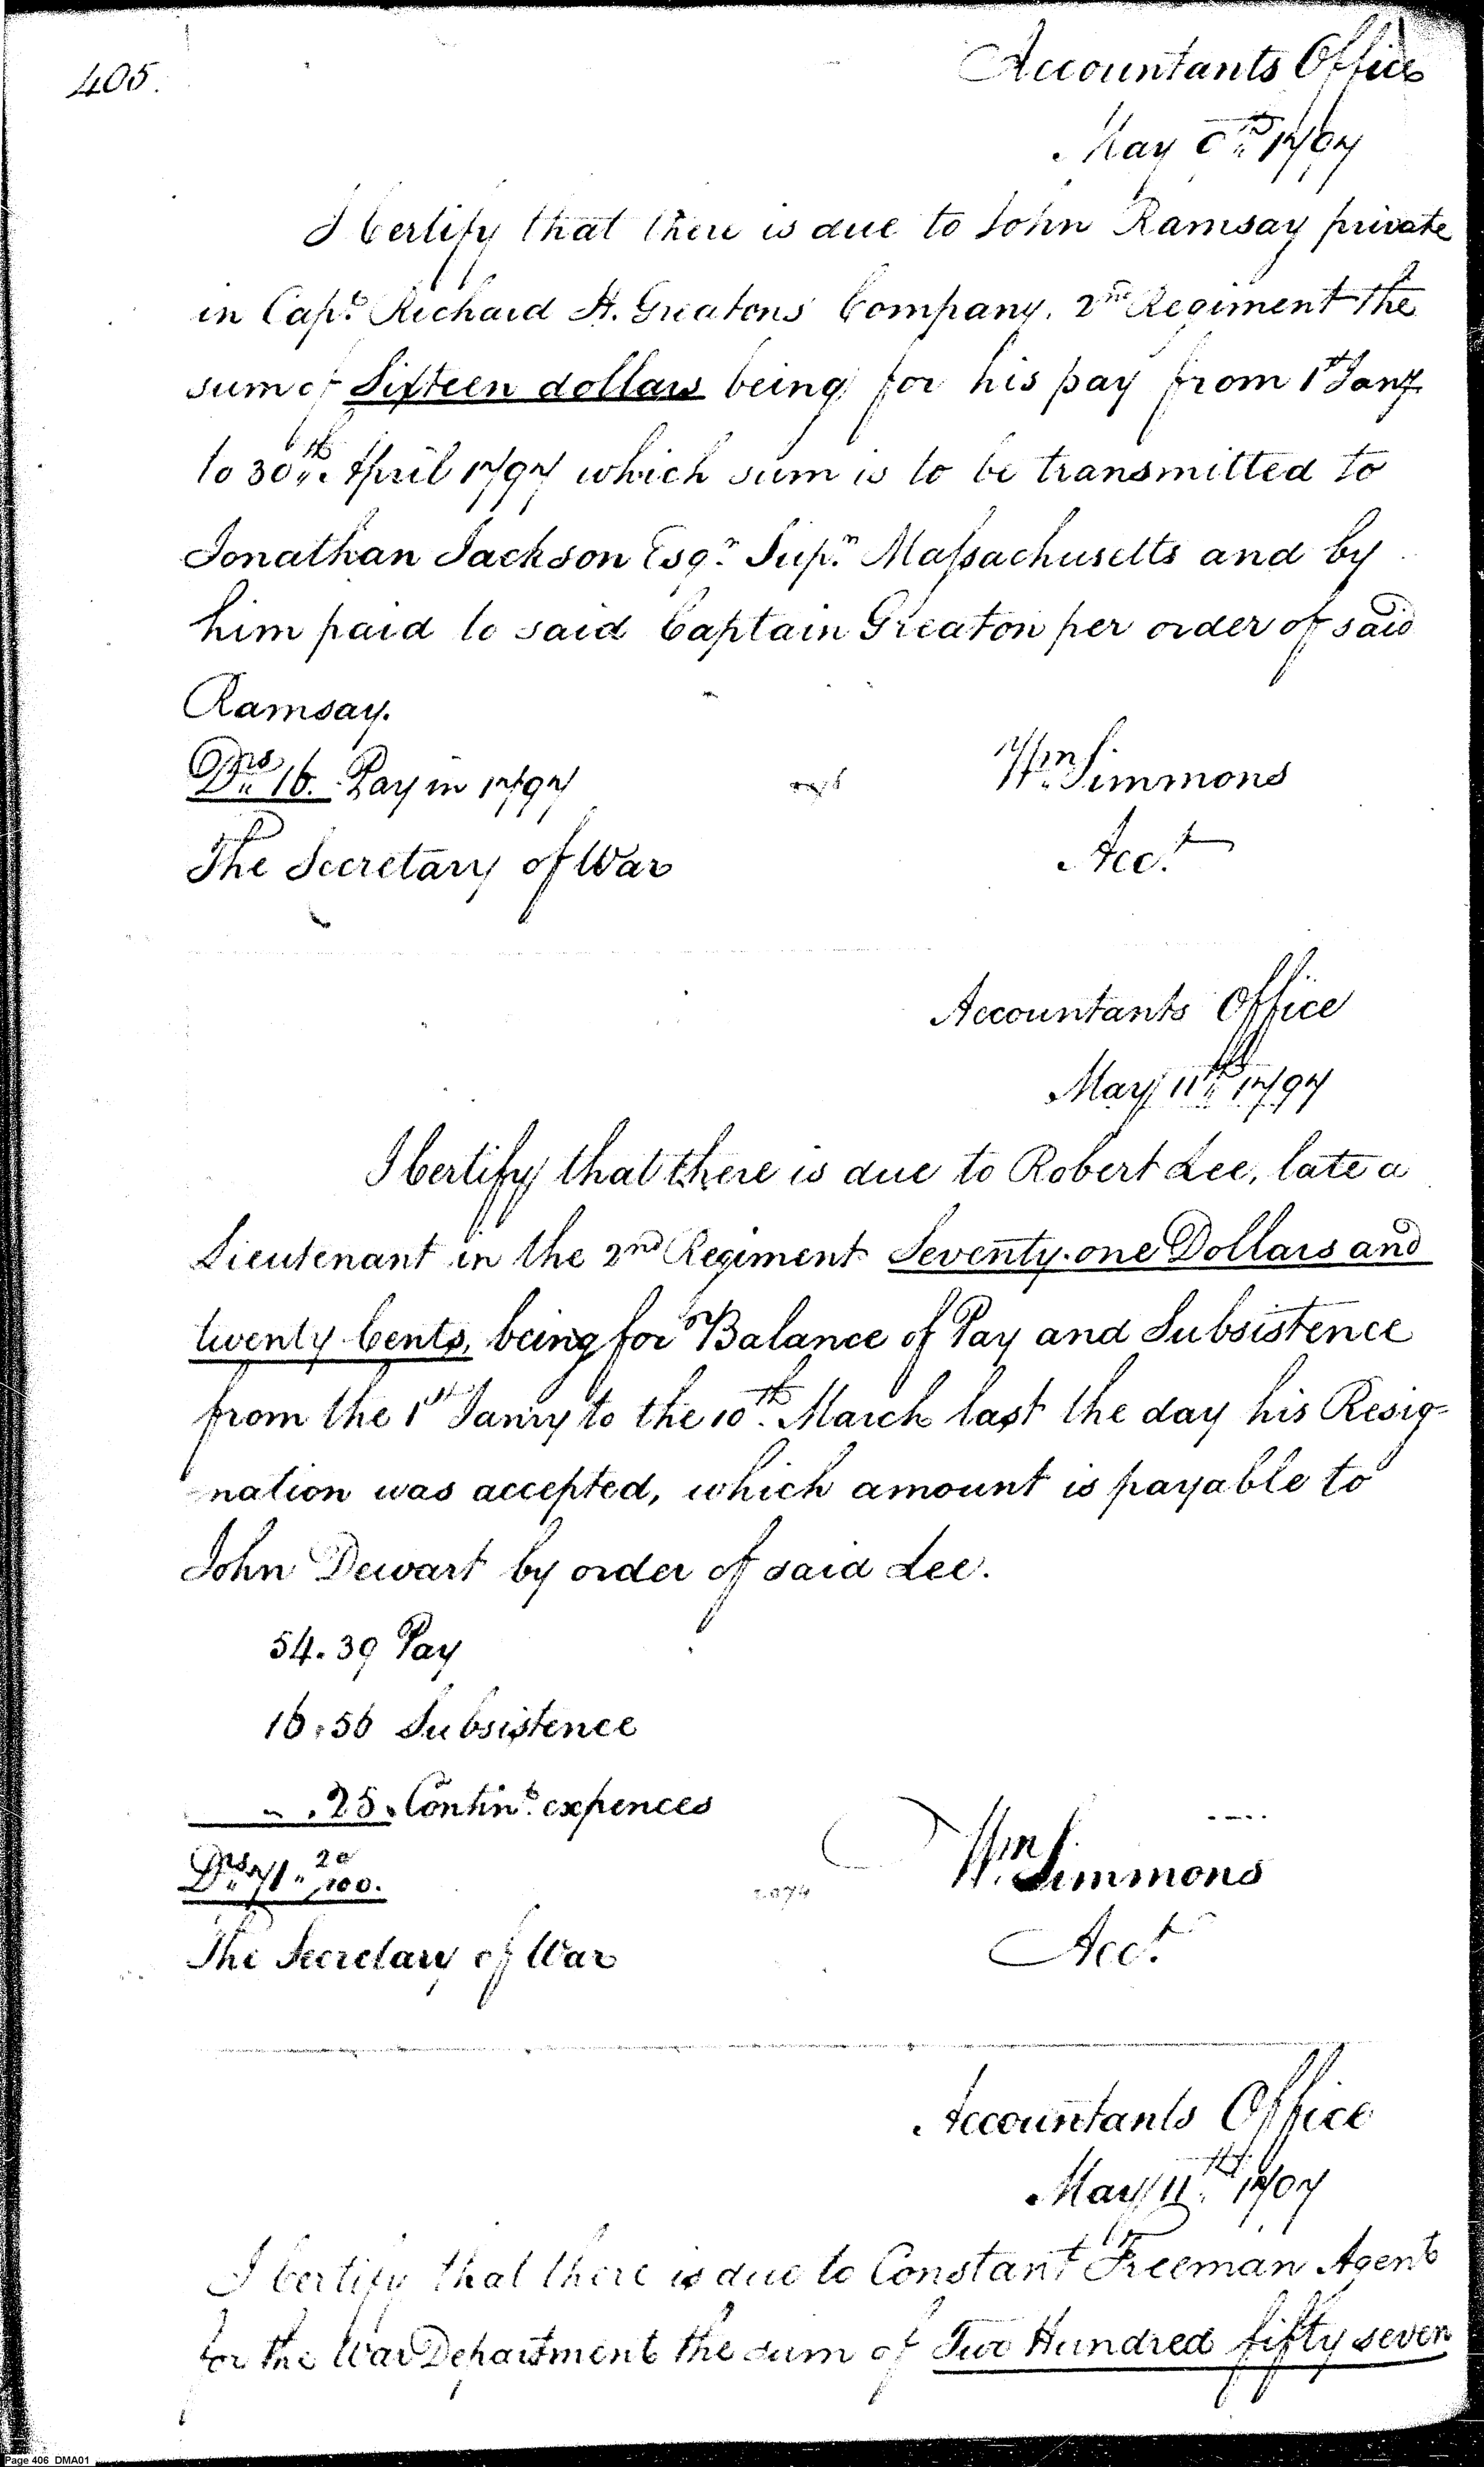 405.
Accountants Office
May th 1797
I Certify that there is due to John Ramsay private
in Capt. Richard H. Greatons Company. 2nd Regiment the
sum of Sixteen dollars being for his pay from 1st Jany.
to 30th. April 1797 which sum is to be transmitted to
Jonathan Jackson Esqr. Supr. Massachusetts and by
him paid to said Captain Greaton per order of said
Ramsay.
Drs 16. Pay in 1797
Wm Simmons
The Secretary of War
Acct.
Accountants Office
May 11th 1797
I Certify that there is due to Robert Lee, late a
Lieutenant in the 2nd Regiment Seventy-one Dollars and
twenty Cents, being for Balance of Pay and Subsistence
from the 1st Janry to the 10th. March last the day his Resig=
nation was accepted, which amount is payable to
John Dewart by order of said Lee.
54.39 Pay
16.56 Subsistence
" .25. Contint. expences
Drs 71 " 20/100.
Wm. Simmons
The Secretary of War
Acct.
Accountants Office
May 11th. 1797
I Certify that there is due to Constant Freeman Agent
for the War Department the sum of Two Hundred fifty seven
Page 406 DMA01